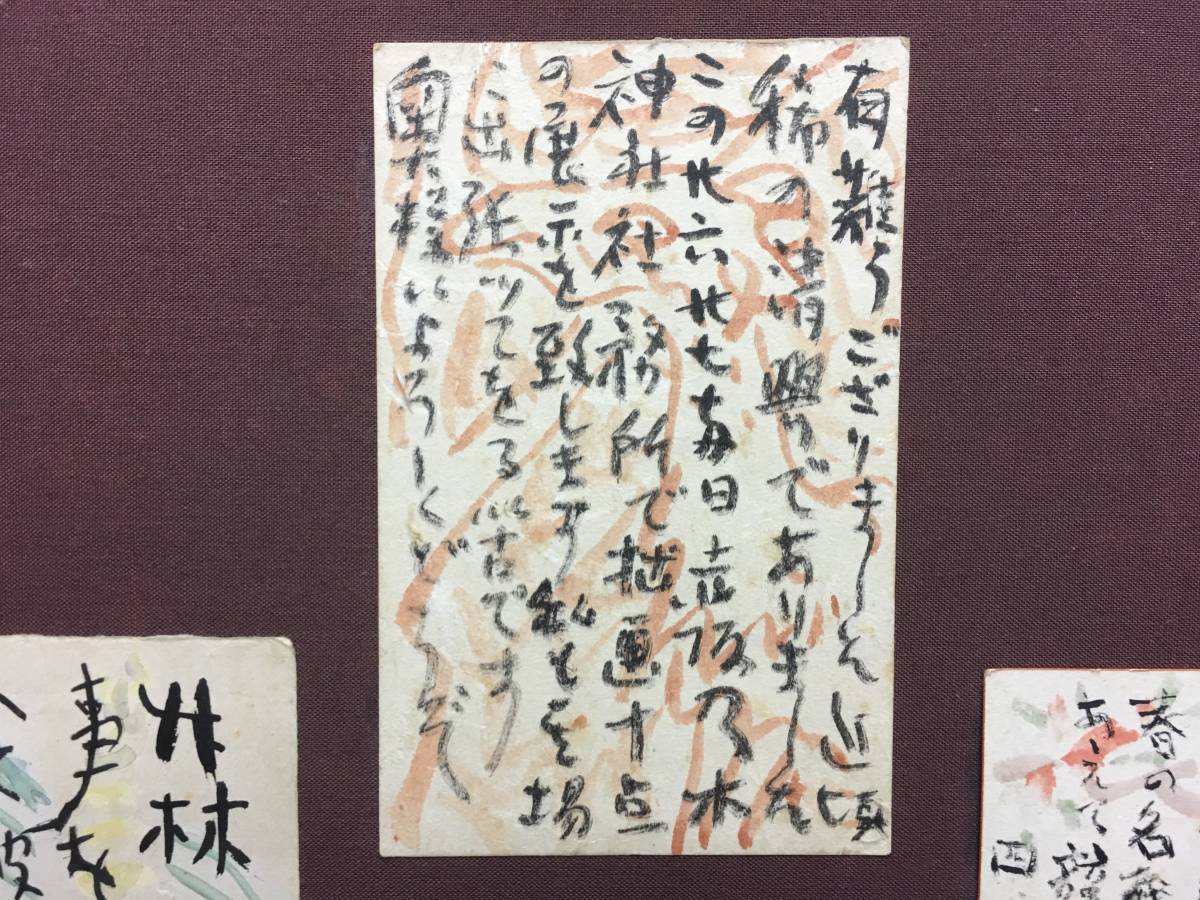 有難うございました近頃
稀の清興でありました
この廿六廿七両日赤坂乃木
神社社務所で拙画十点
の展示を致します私も其場
に出張ってをる筈です
奥様によろしくどうぞ
春の名
あ
四
林
事を
皮